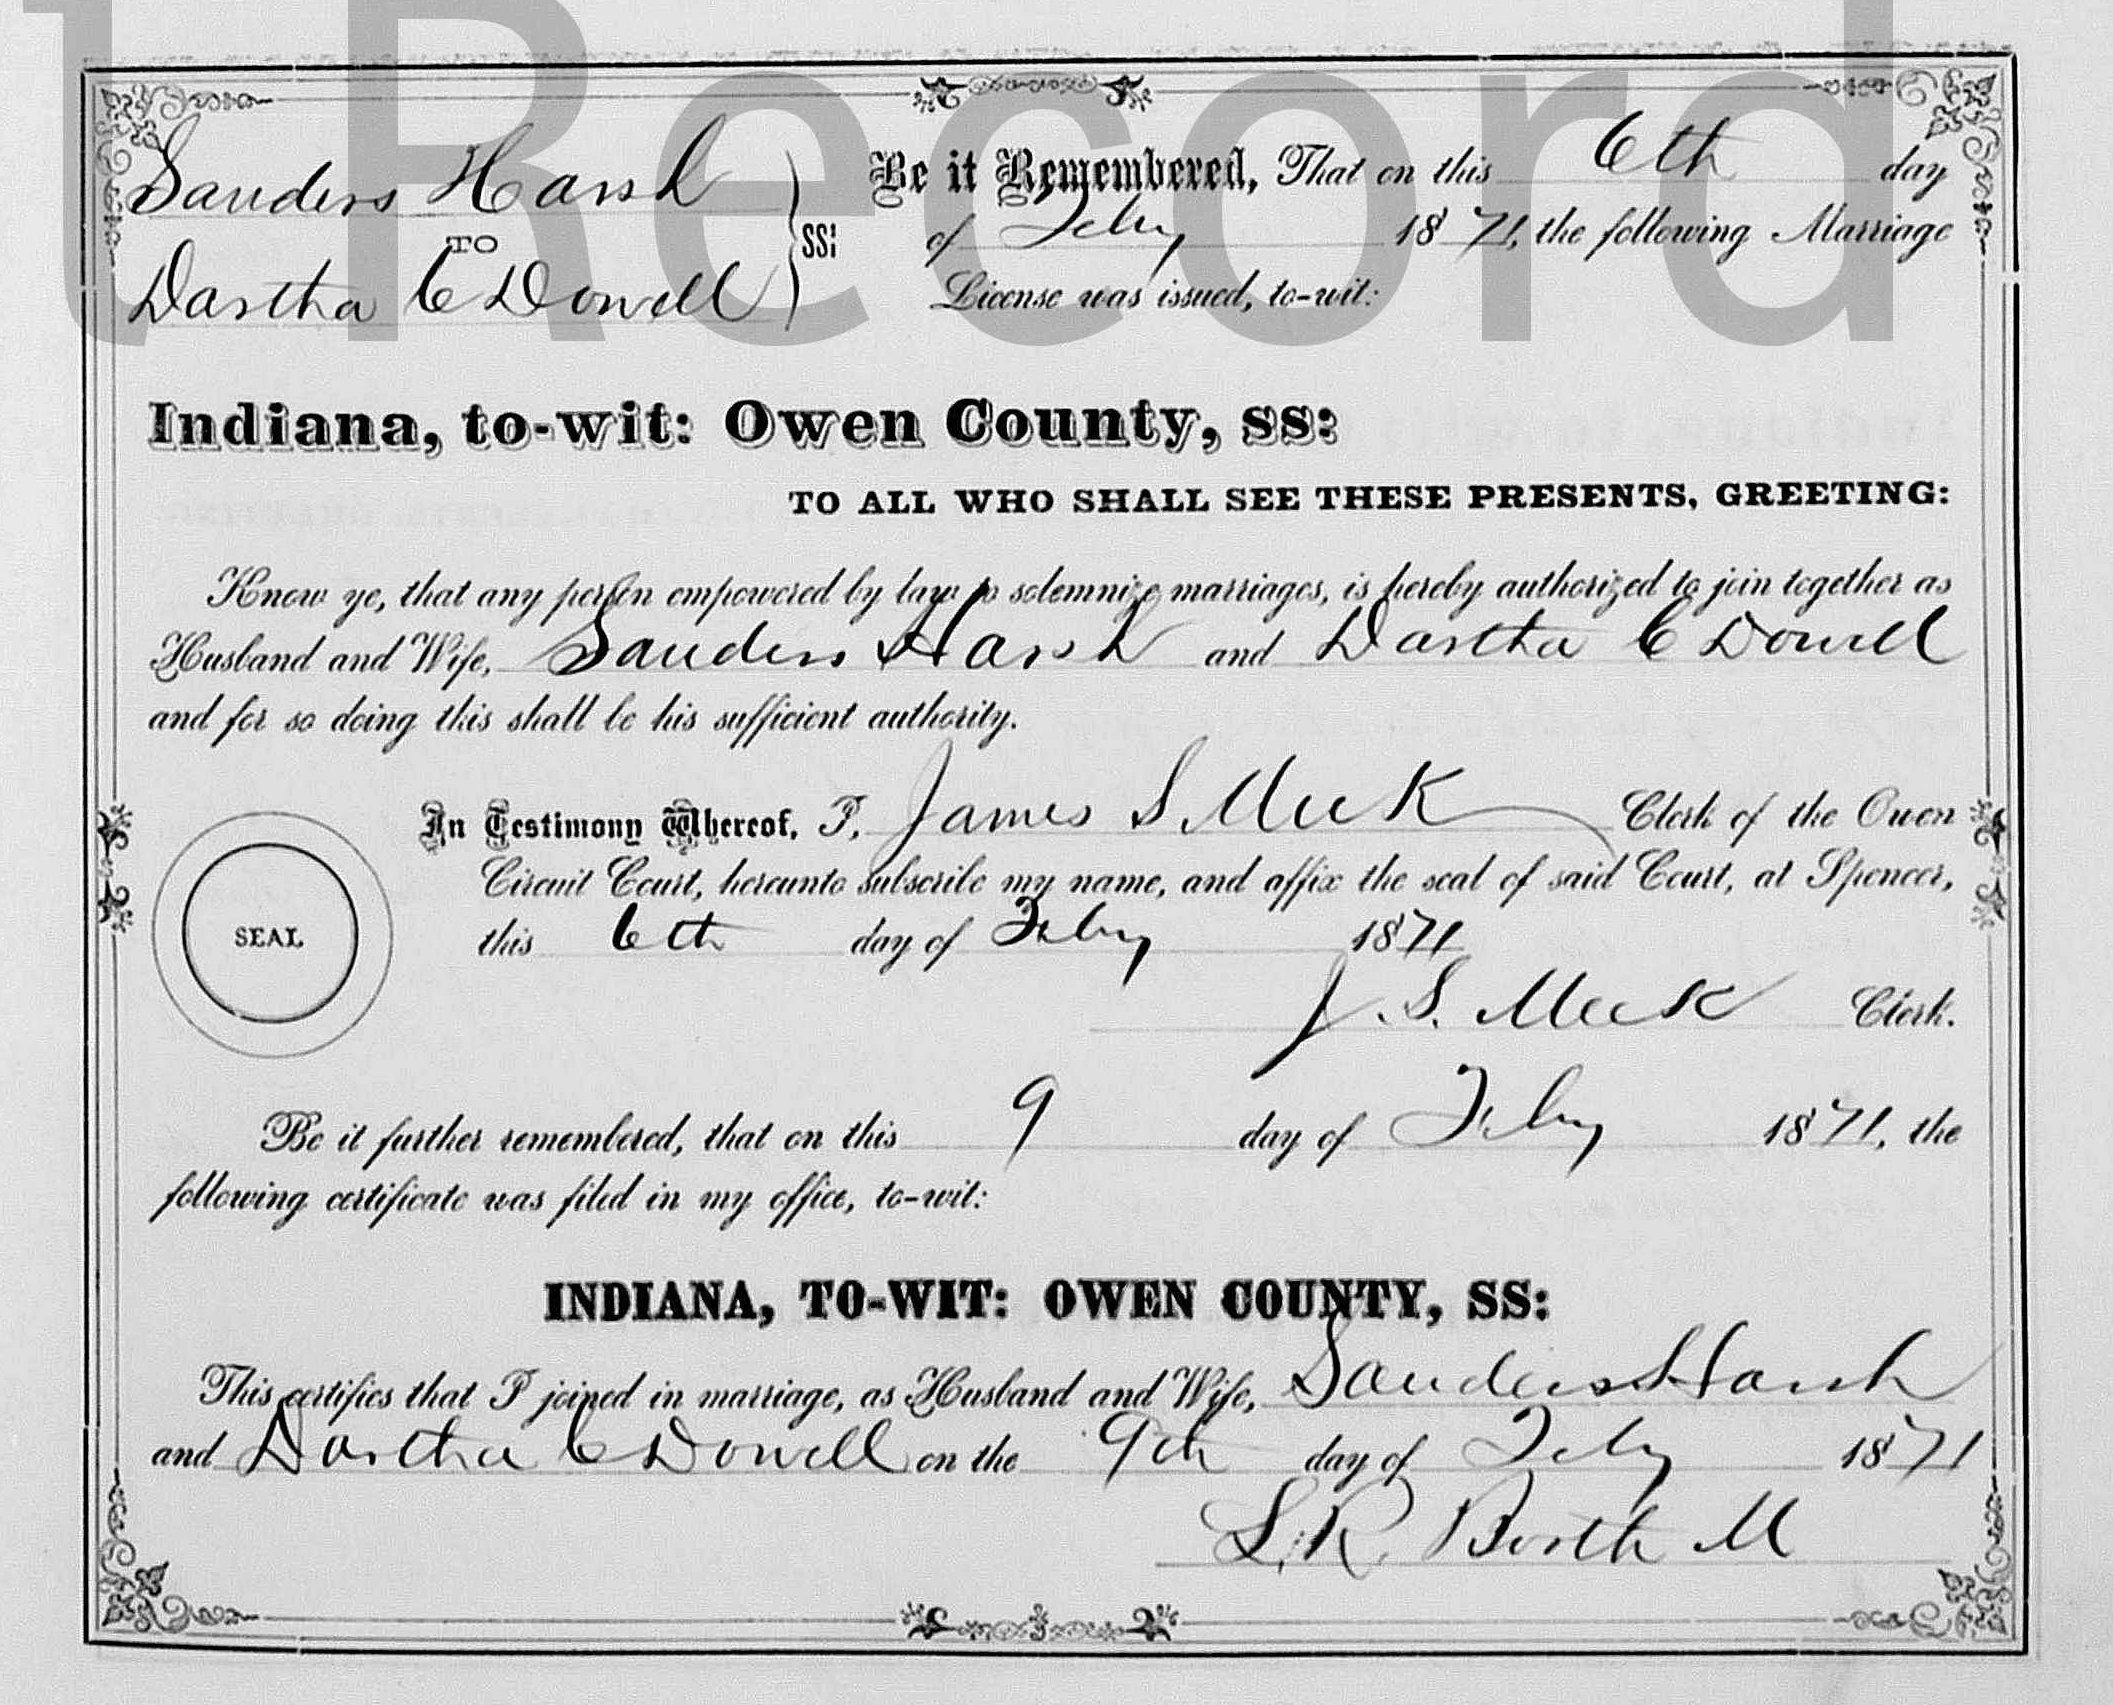 t Record
Sanders Harsh
TO
Dartha C Dowell
SS:
Be it Remembered, That on this 6th day
of Feby 1871, the following Marriage
License was issued, to-wit:
Indiana, to-wit: Owen County, ss:
TO ALL WHO SHALL SEE THESE PRESENTS, GREETING:
Know ye, that any person empowered by law to solemnize marriages, is hereby authorized to join together as
Husband and Wife, Sanders Harsh and Dartha C Dowell
and for so doing this shall be his sufficient authority.
In Testimony Whereof, I, James S Meek Clerk of the Owen
Circuit Court, hereunto subscribe my name, and affix the seal of said Court, at Spencer,
SEAL
this 6th day of Feby 1871
J. S. Meek Clerk.
Be it further remembered, that on this 9 day of Feby 1871, the
following certificate was filed in my office, to-wit:
INDIANA, TO-WIT: OWEN COUNTY, SS:
This certifies that I joined in marriage, as Husband and Wife, Sanders Harsh
and Dartha C Dowell on the 9th day of Feby 1871
L. R. M